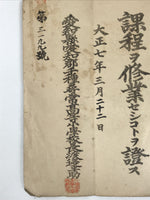 課程ヲ修業セシコトヲ證ス
大正七年三月二十二日
愛知縣愛知郡千種尋常高等小學校長
第三一九九號